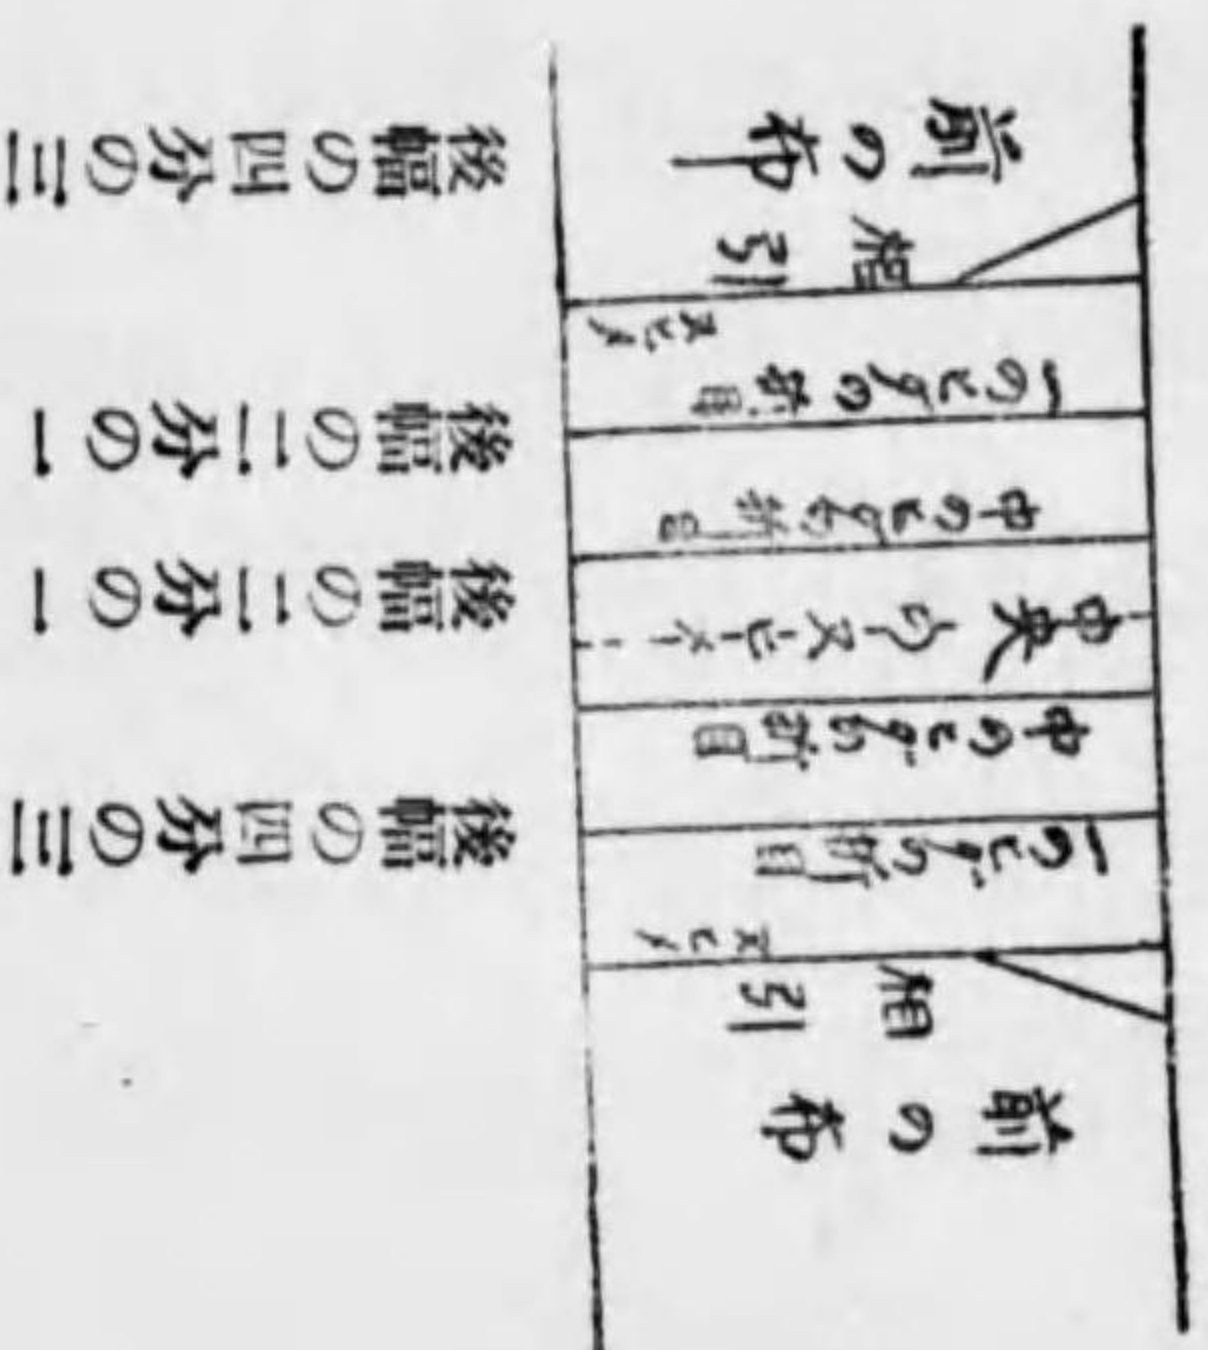 前の布
相引
ヌヒメ
一のヒダの折目
中のヒダの折目
中央ノヌヒメ
中のヒダの折目
一のヒダの折目
ヌヒメ
相引
前の布
後幅の四分の三
後幅の二分の一
後幅の二分の一
後幅の四分の三